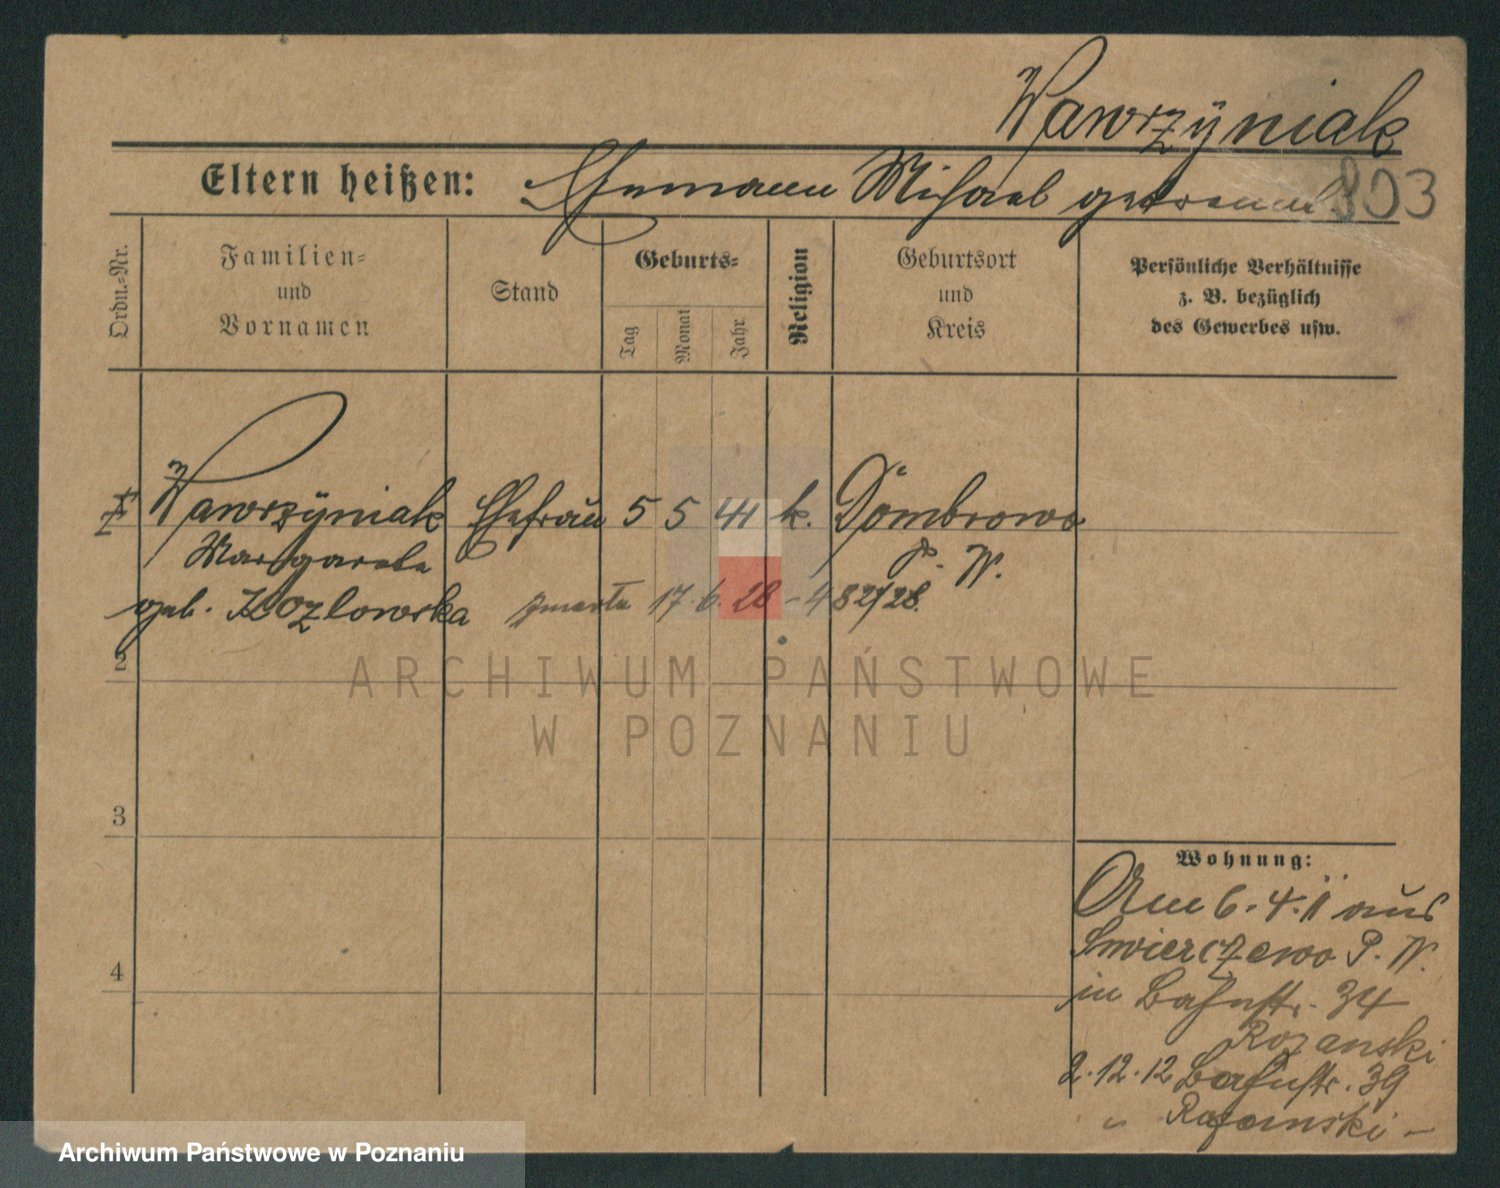 Wawrzÿniak
Eltern heißen: Ehemann Michael getrennt
803
Ordn.-Nr.
Familien-
und
Vornamen
Stand
Geburts-
Tag
Monat
Jahr
Religion
Geburtsort
und
Kreis
Persönliche Verhältnisse
z. B. bezüglich
des Gewerbes usw.
1 Wawrzÿniak Ehefrau 5 5 41 k. Dombrowo
Margarete P. W.
geb. Kozlowska zmarła 17.6.28 - 482/28.
2
ARCHIWUM PAŃSTWOWE
W POZNANIU
3
4
Wohnung:
Am 6.4.11 aus
Swierczewo P. W.
in Bahnstr. 34
Rozanski
2.12.12 Bahnstr. 39
" -
Archiwum Państwowe w Poznaniu